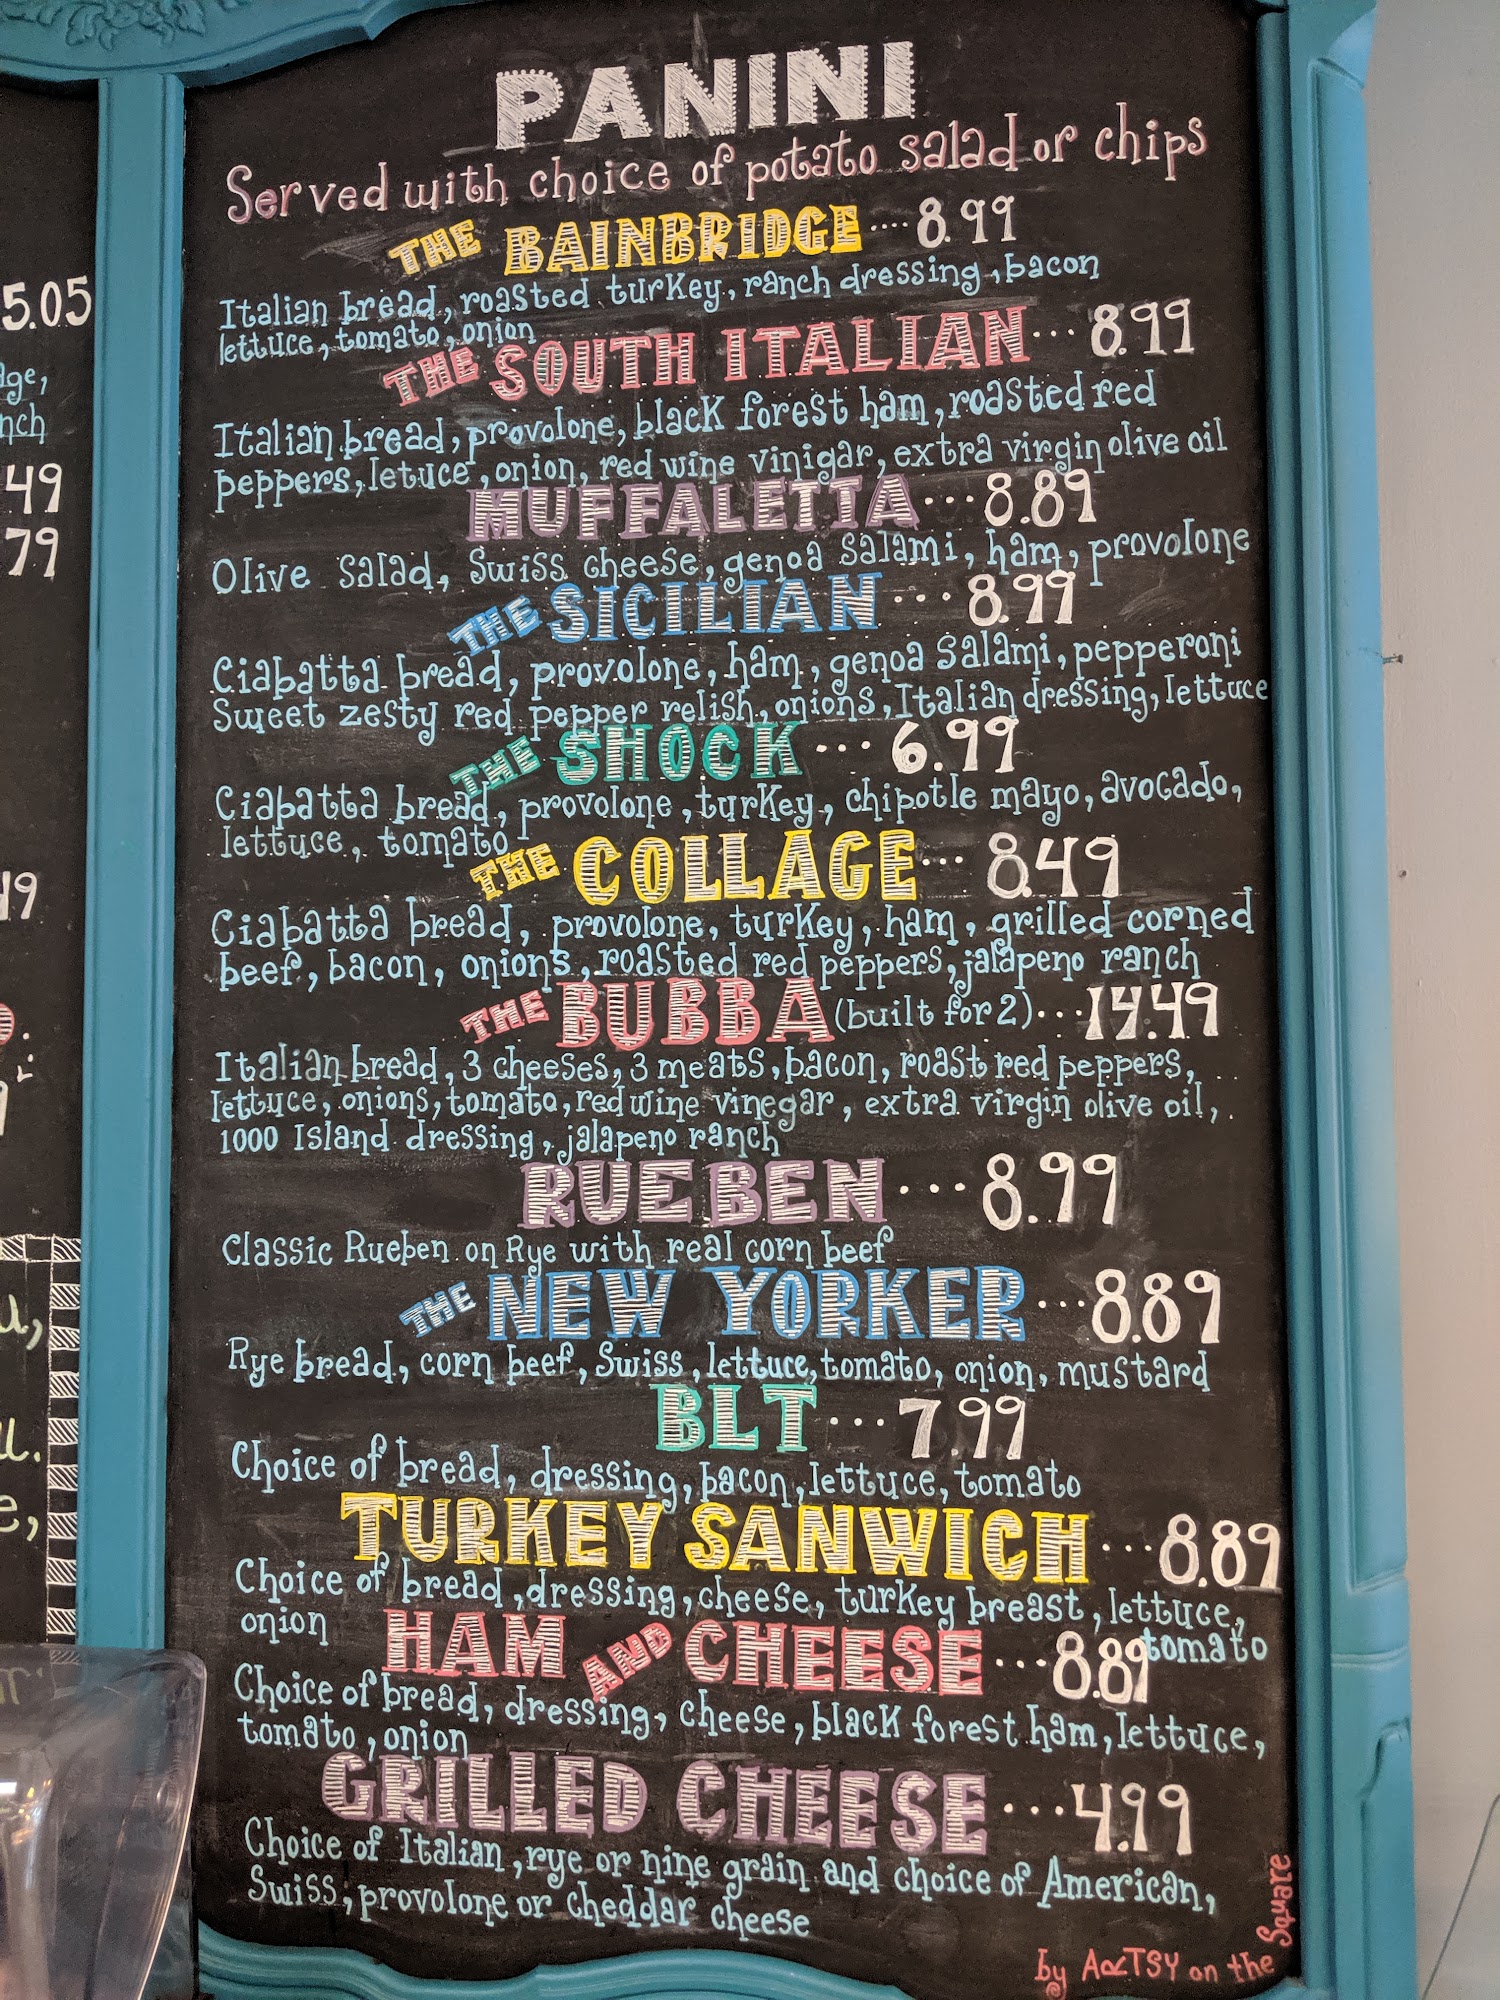 PANINI
Served with choice of potato salad or chips
THE BAINBRIDGE ···· 8.99
Italian bread, roasted turkey, ranch dressing, bacon
lettuce, tomato, onion
THE SOUTH ITALIAN ··· 8.99
Italian bread, provolone, black forest ham, roasted red
peppers, letuce, onion, red wine vinigar, extra virgin olive oil
MUFFALETTA ··· 8.89
Olive salad, Swiss cheese, genoa salami, ham, provolone
THE SICILIAN ··· 8.99
Ciabatta bread, provolone, ham, genoa salami, pepperoni
Sweet zesty red pepper relish, onions, Italian dressing, lettuce
THE SHOCK ··· 6.99
Ciabatta bread, provolone, turkey, chipotle mayo, avocado,
lettuce, tomato
THE COLLAGE ··· 8.49
Ciabatta bread, provolone, turkey, ham, grilled corned
beef, bacon, onions, roasted red peppers, jalapeno ranch
THE BUBBA (built for 2) ··· 14.49
Italian bread, 3 cheeses, 3 meats, bacon, roast red peppers,
lettuce, onions, tomato, red wine vinegar, extra virgin olive oil,
1000 Island dressing, jalapeno ranch
RUEBEN ··· 8.99
Classic Rueben on Rye with real corn beef
THE NEW YORKER ··· 8.89
Rye bread, corn beef, Swiss, lettuce, tomato, onion, mustard
BLT ··· 7.99
Choice of bread, dressing, bacon, lettuce, tomato
TURKEY SANWICH ··· 8.89
Choice of bread, dressing, cheese, turkey breast, lettuce, tomato
onion
HAM AND CHEESE ··· 8.89
Choice of bread, dressing, cheese, black forest ham, lettuce,
tomato, onion
GRILLED CHEESE ··· 4.99
Choice of Italian, rye or nine grain and choice of American,
Swiss, provolone or cheddar cheese
by ARTSY on the Square
5.05
.49
.79